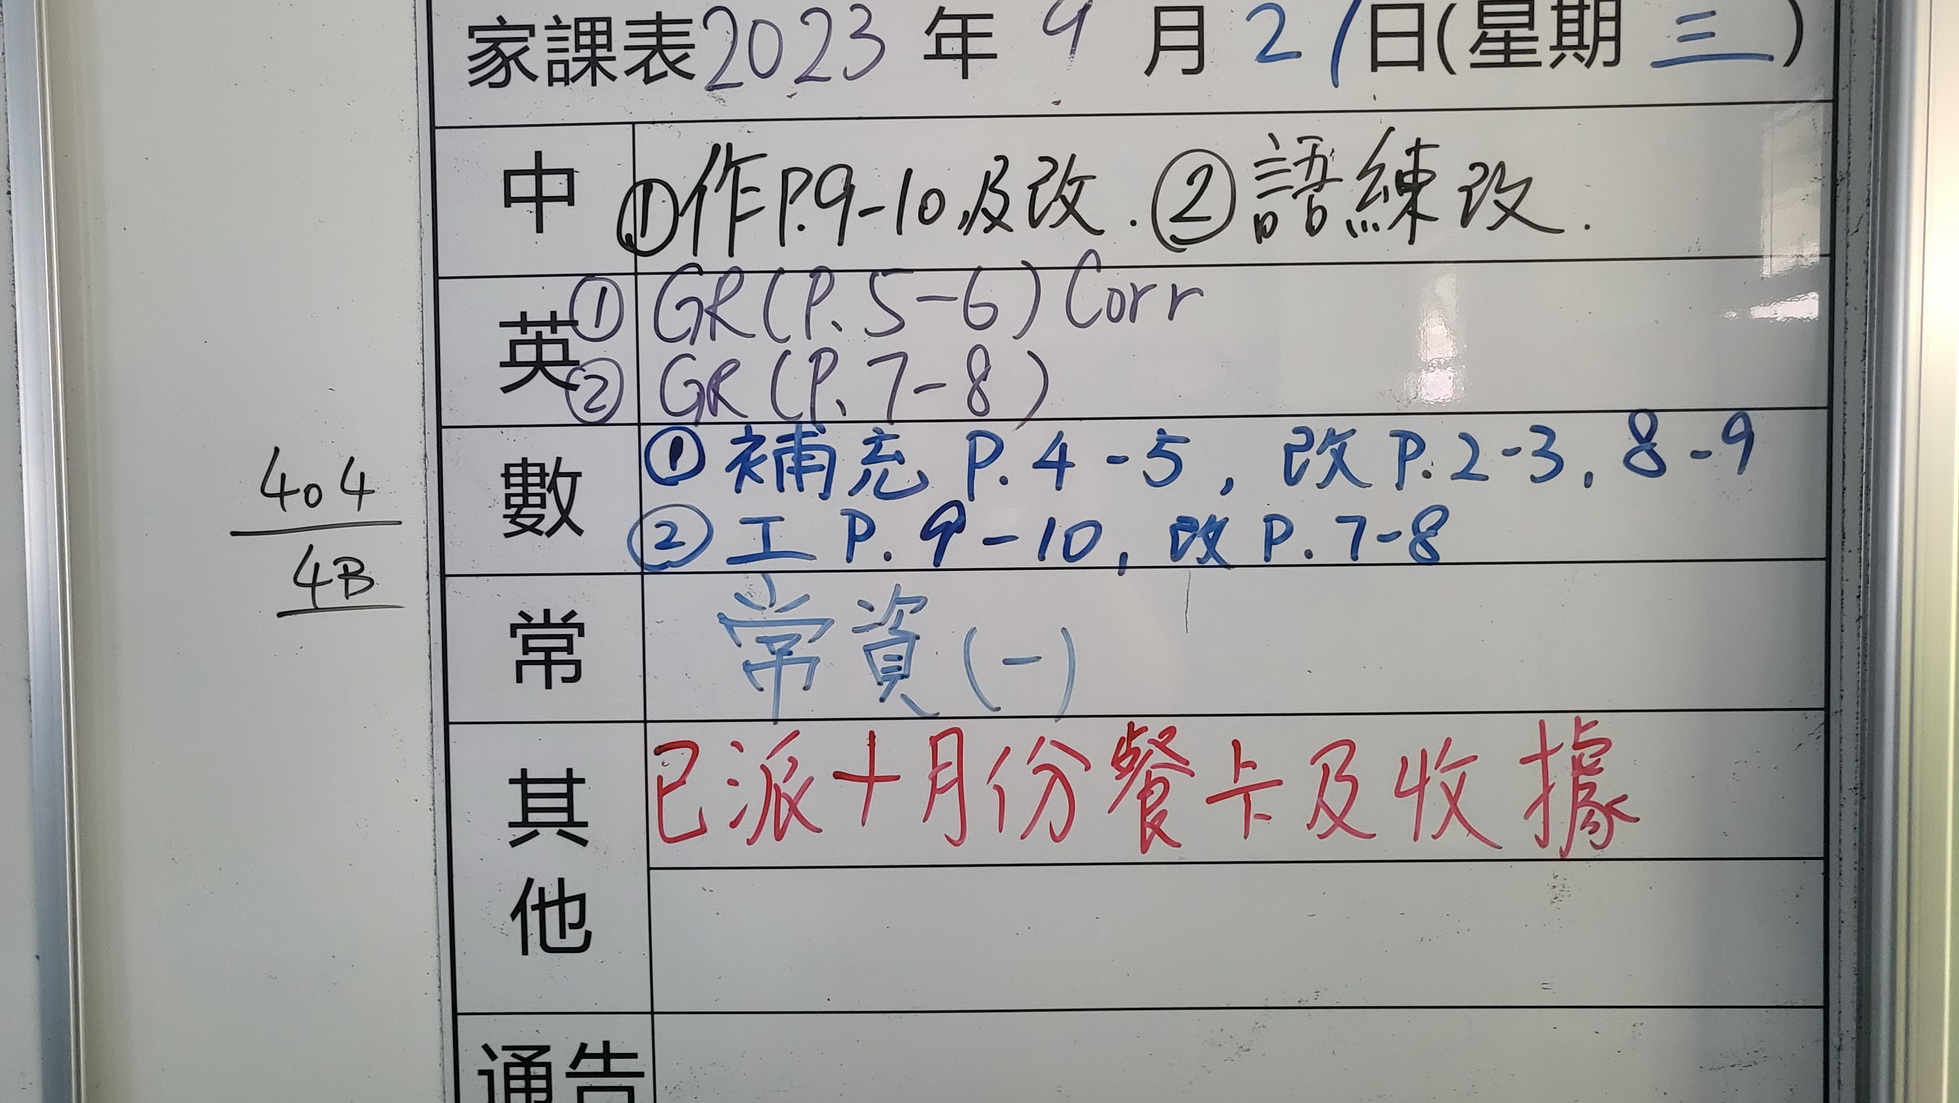 家課表2023年9月21日(星期三)
中 ①作P.9-10及改.②語練改.
英 ① GR(P.5-6)Corr
② GR(P.7-8)
數 ① 補充 P.4-5, 改P.2-3, 8-9
② 工 P.9-10, 改 P.7-8
404
4B
常 常資(一)
其他 已派十月份餐卡及收據
通告